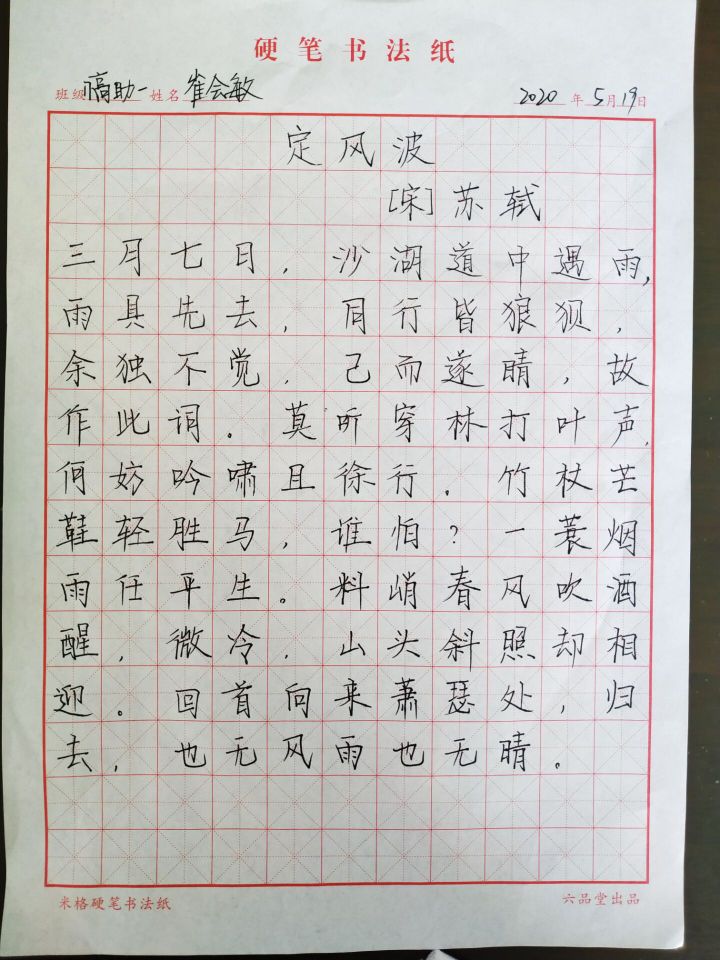 硬笔书法纸
班级 高助一 姓名 崔会敏 2020年5月19日
定风波
[宋]苏轼
三月七日，沙湖道中遇雨，
雨具先去，同行皆狼狈，
余独不觉，已而遂晴，故
作此词。莫听穿林打叶声，
何妨吟啸且徐行。竹杖芒
鞋轻胜马，谁怕？一蓑烟
雨任平生。料峭春风吹酒
醒，微冷，山头斜照却相
迎。回首向来萧瑟处，归
去，也无风雨也无晴。
米格硬笔书法纸 六品堂出品